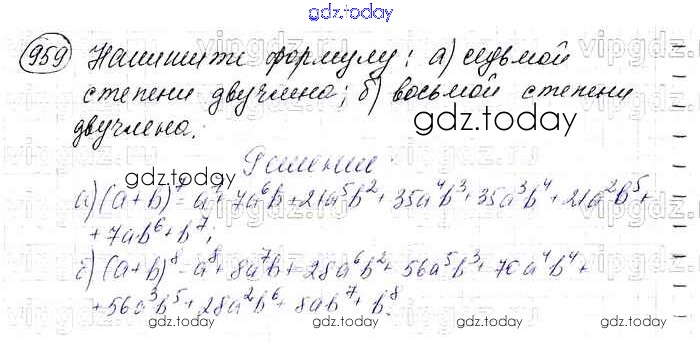 gdz.today
959 Напишите формулу: а) седьмой
степени двучлена; б) восьмой степени
двучлена.
gdz.today
Решение
gdz.today
а) (a+b)⁷=a⁷+7a⁶b+21a⁵b²+35a⁴b³+35a³b⁴+21a²b⁵+
+7ab⁶+b⁷;
б) (a+b)⁸=a⁸+8a⁷b+28a⁶b²+56a⁵b³+70a⁴b⁴+
+56a³b⁵+28a²b⁶+8ab⁷+b⁸.
gdz.today gdz.today gdz.today